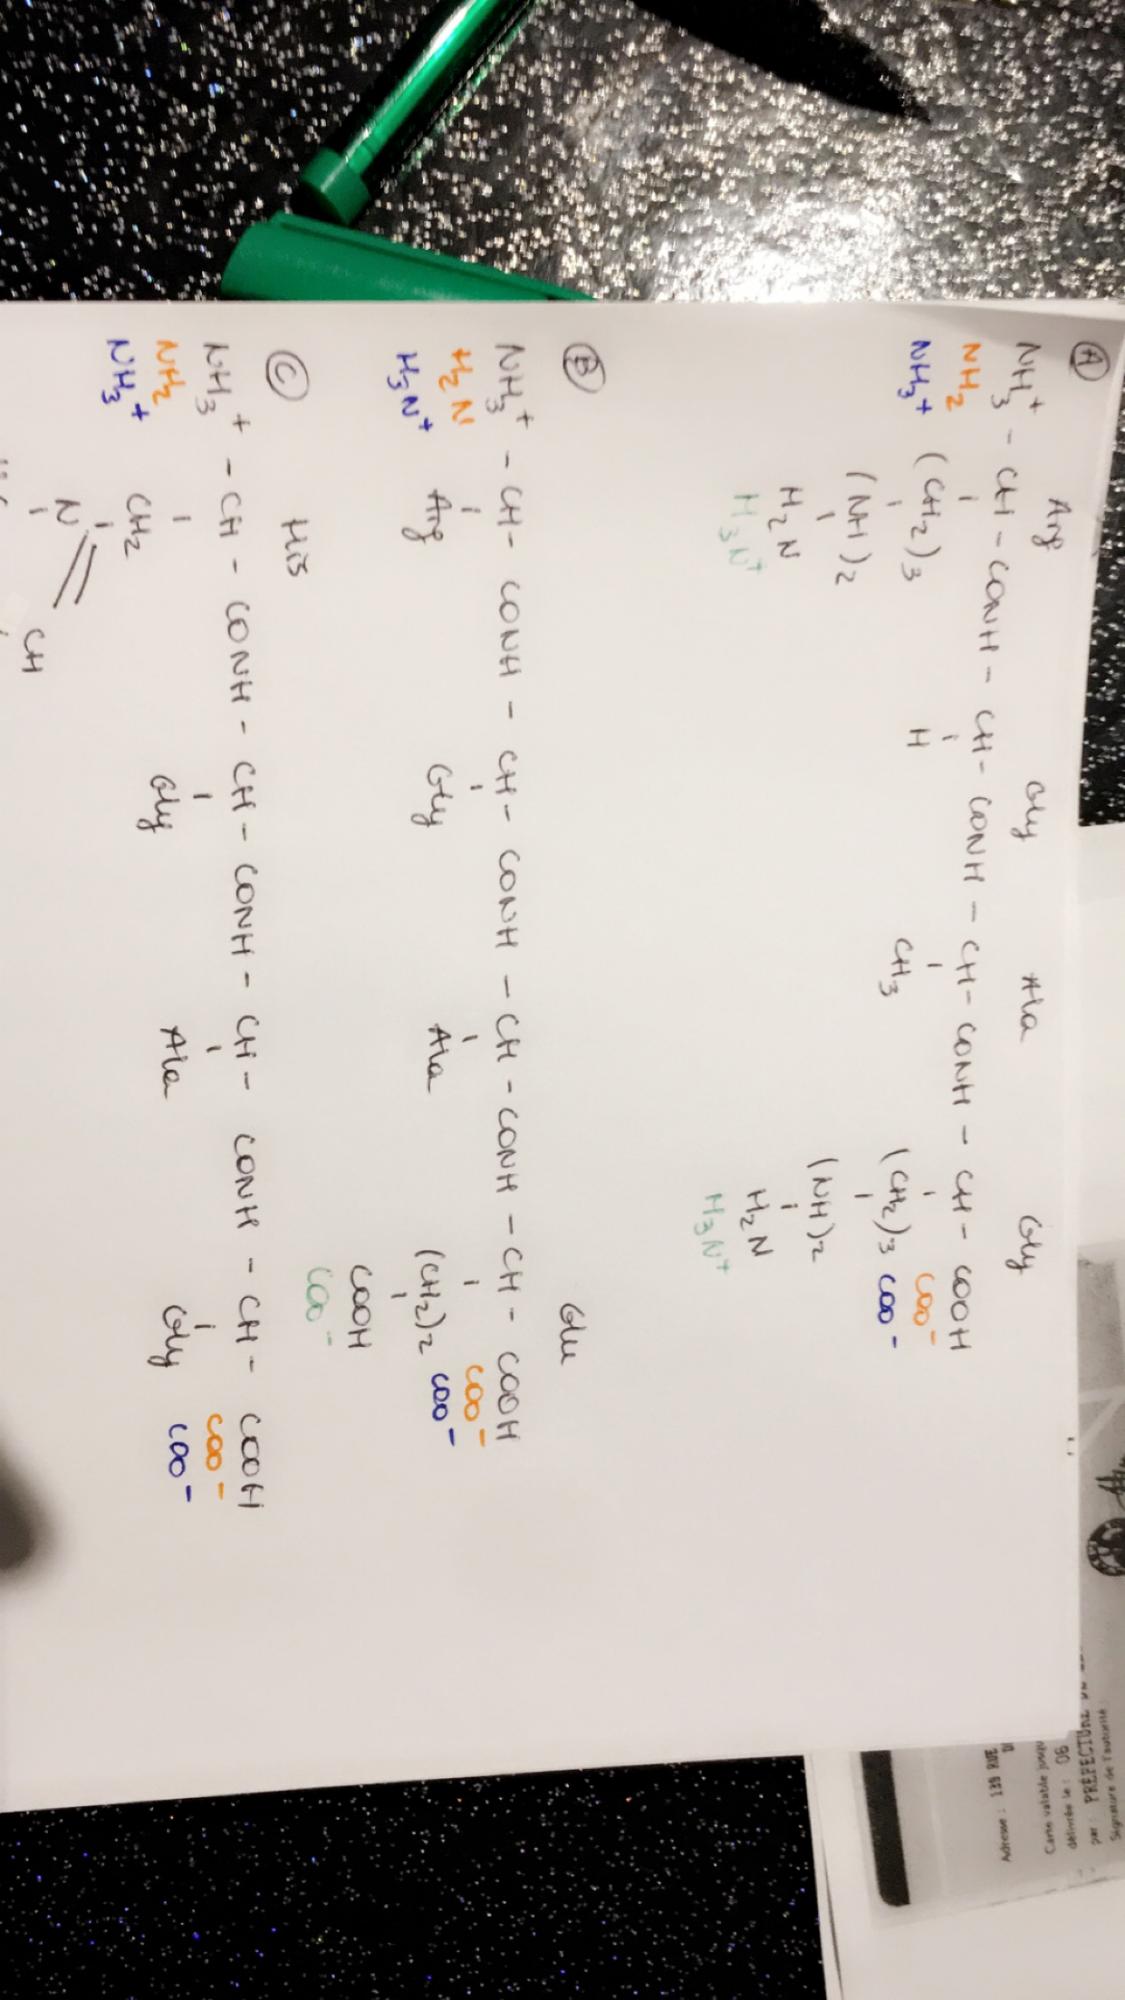 A
Arg Gly Ala Gly
NH3+ - CH - CONH - CH - CONH - CH - CONH - CH - COOH
NH2 COO-
NH3+ (CH2)3 H CH3 (CH2)3 COO-
(NH)2 (NH)2
H2N H2N
H3N+ H3N+
B
Glu
NH3+ - CH - CONH - CH - CONH - CH - CONH - CH - COOH
H2N COO-
H3N+ Arg Gly Ala (CH2)2 COO-
COOH
COO-
C
His
NH3+ - CH - CONH - CH - CONH - CH - CONH - CH - COOH
NH2 COO-
NH3+ CH2 Gly Ala Gly COO-
N
CH
Adresse : 139 RUE
Carte valable jusqu
délivrée le : 06
par : PRÉFECTURE DE
Signature de l'autorité :